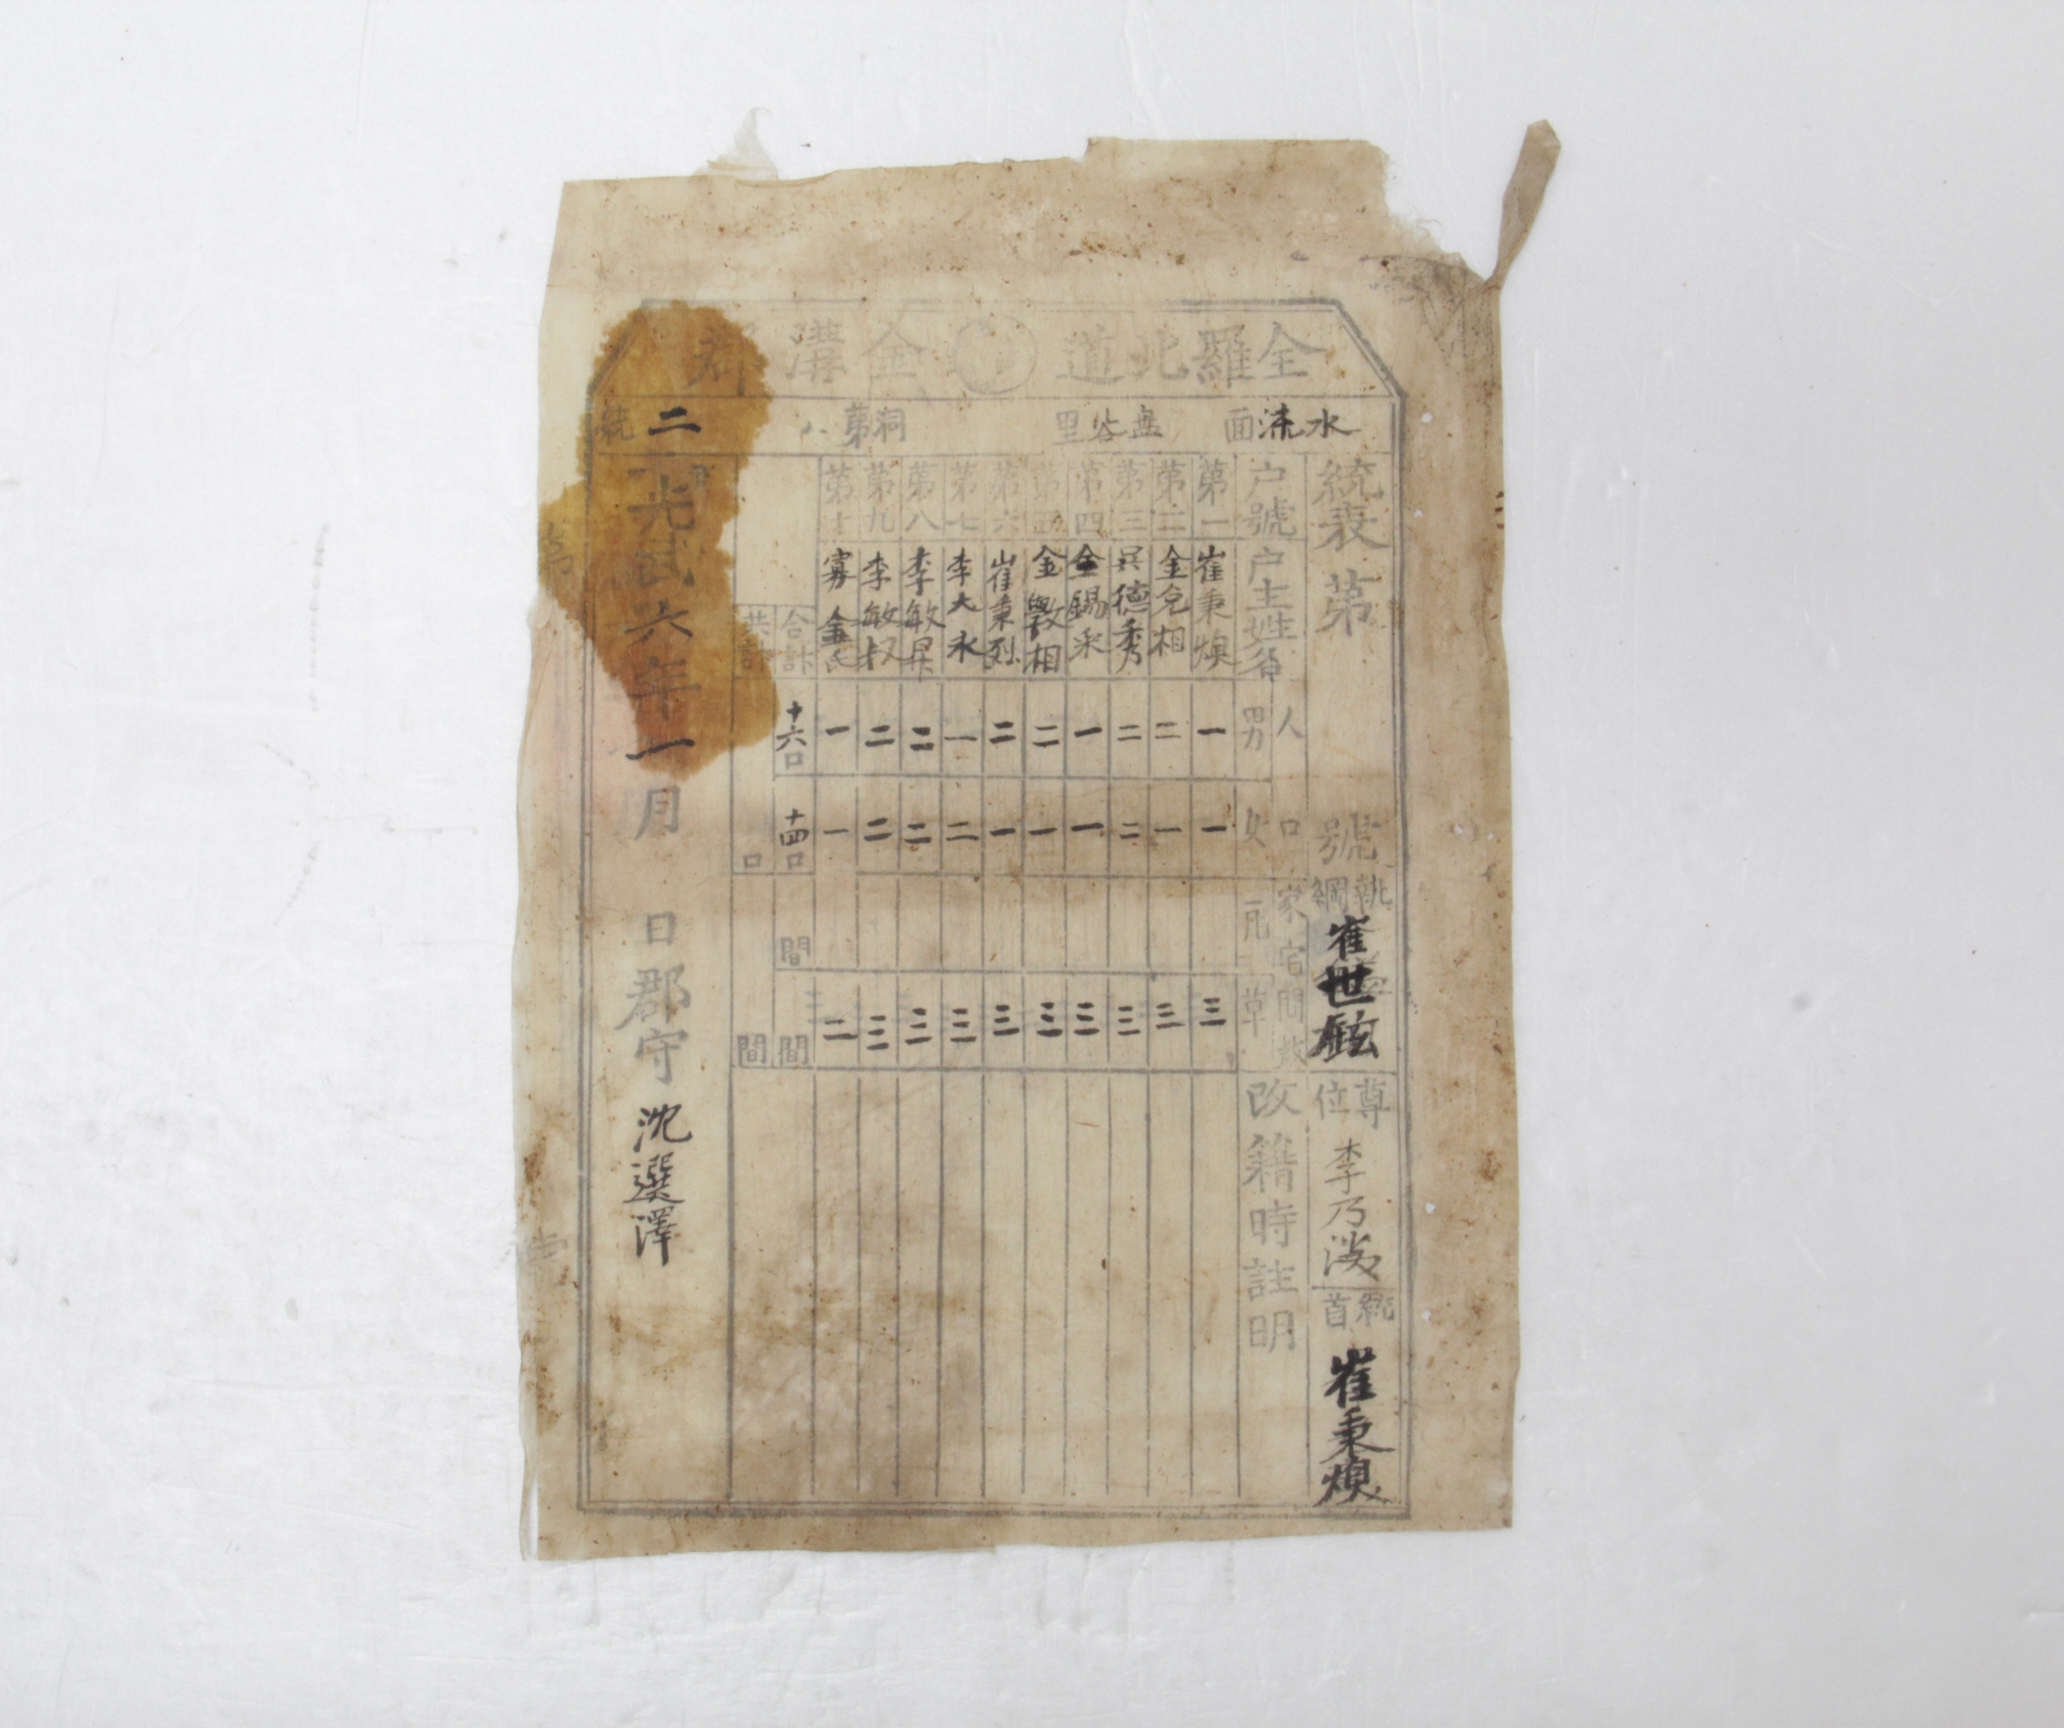 全羅北道 金溝郡
水流面 里 洞第 二統
統表 第 號
執綱 崔世鉉
尊位 李乃
統首 崔秉煥
戶號 戶主姓名 人口 男 女 家宅間数 瓦 草 改籍時註明
第一 崔秉煥 一 一 三
第二 金允相 二 一 三
第三 吳德秀 二 二 三
第四 金錫采 一 一 三
第五 金敦相 二 一 三
第六 崔秉烈 二 一 三
第七 李大永 一 二 三
第八 李敏昇 二 二 三
第九 李敏叔 二 二 三
第十 寡金氏 一 一 二
合計 十六口 十四口 間 間
共計 口 間
光武六年一月 日郡守 沈選澤